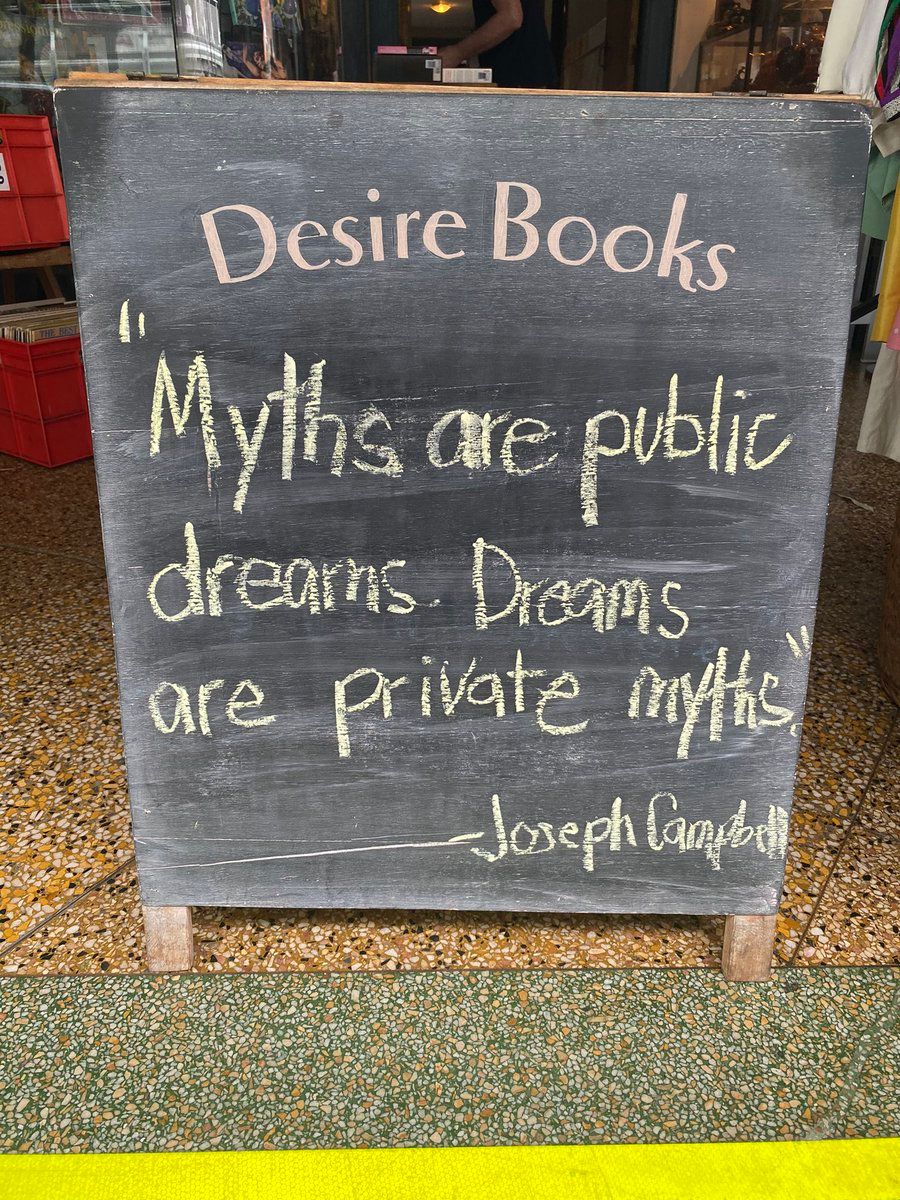 Desire Books
"Myths are public
dreams. Dreams
are private myths."
—Joseph Campbell
THE BEST